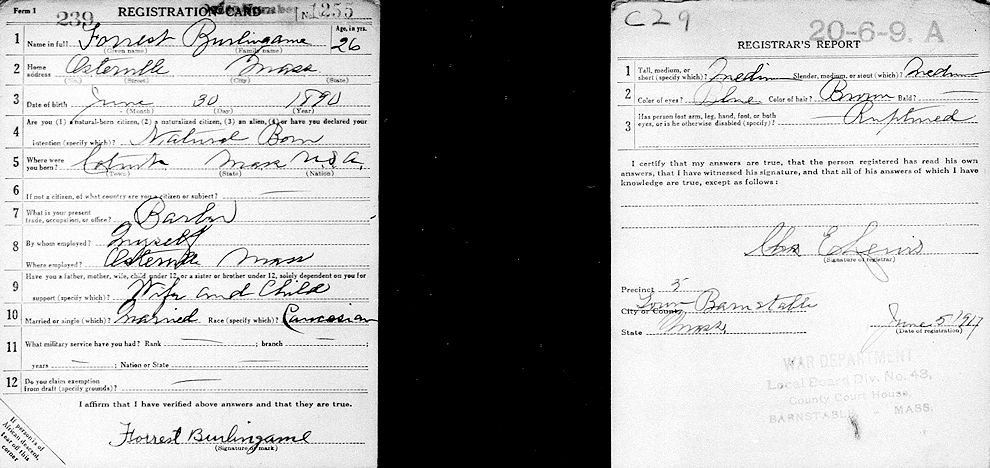 Form 1 239 REGISTRATION CARD No. 1255
1 Name in full Forrest Burlingame Age, in yrs. 26
(Given name) (Family name)
2 Home address Osterville Mass
(No.) (Street) (City) (State)
3 Date of birth June 30 1890
(Month) (Day) (Year)
4 Are you (1) a natural-born citizen, (2) a naturalized citizen, (3) an alien, (4) or have you declared your
intention (specify which)? Natural Born
5 Where were you born? Cotuit Mass U.S.A.
(Town) (State) (Nation)
6 If not a citizen, of what country are you a citizen or subject?
7 What is your present trade, occupation, or office? Barber
8 By whom employed? Myself
Where employed? Osterville Mass
9 Have you a father, mother, wife, child under 12, or a sister or brother under 12, solely dependent on you for
support (specify which)? Wife and Child
10 Married or single (which)? Married Race (specify which)? Caucasian
11 What military service have you had? Rank ; branch ;
years ; Nation or State
12 Do you claim exemption from draft (specify grounds)?
I affirm that I have verified above answers and that they are true.
Forrest Burlingame
(Signature or mark)
If person is of
African descent,
tear off this
corner
C29
20-6-9 A
REGISTRAR'S REPORT
1 Tall, medium, or short (specify which)? Medium Slender, medium, or stout (which)? Medium
2 Color of eyes? Blue Color of hair? Brown Bald?
3 Has person lost arm, leg, hand, foot, or both eyes, or is he otherwise disabled (specify)? Ruptured
I certify that my answers are true, that the person registered has read his own
answers, that I have witnessed his signature, and that all of his answers of which I have
knowledge are true, except as follows:
Chas E Lewis
(Signature of registrar)
Precinct 5
City or County Town Barnstable
State Mass. June 5 1917
(Date of registration)
WAR DEPARTMENT
Local Board Div. No. 43,
County Court House,
BARNSTABLE - MASS.